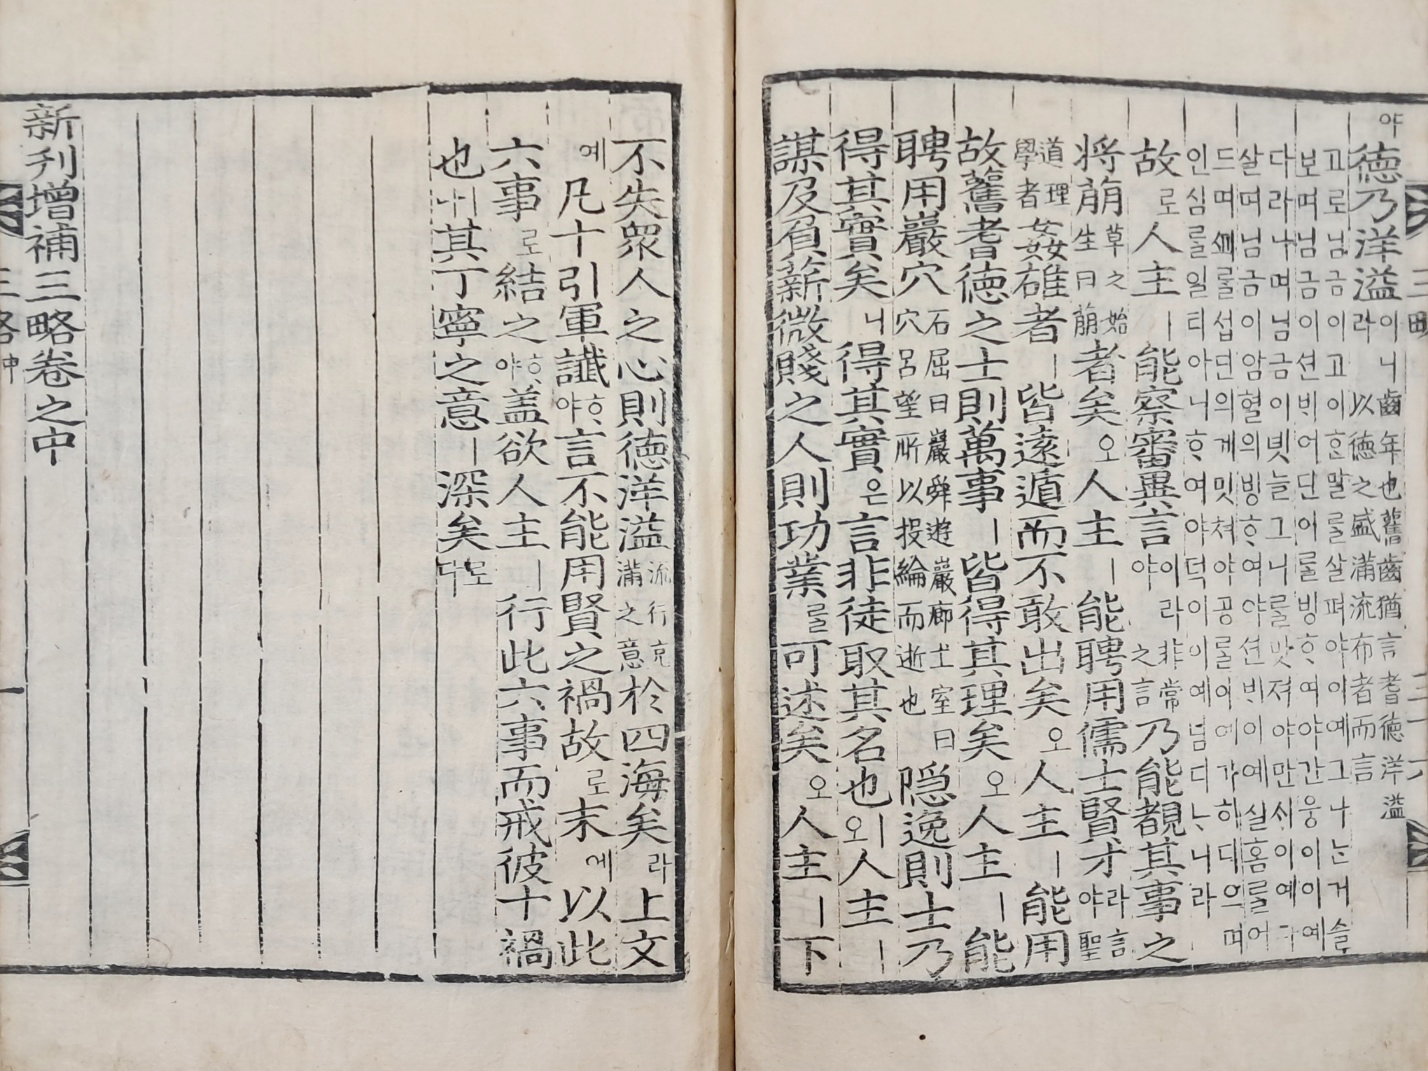 야德乃洋溢이니齒年也舊齒猶言耆德洋溢라以德之盛滿流布者而言
고로님금이고이ᄒᆞᆫ말를살펴야이예그나ᄂᆞᆫ거슬
보며님금이션ᄇᆡ어단이를빙ᄒᆞ여야간웅이이예
다라나며님금이녯늘그니를맛져야만ᄉᆡ이예다
살며님금이암혈의빙ᄒᆞ여야션ᄇᆡ이예실홈를어
드며를섭던의게밋쳐야공를이여가히디으며
인심를일티아니ᄒᆞ여야덕이이예넘디ᄂᆞ니라
故로人主ㅣ能察審異言이라非常야之言乃能覩其事之
將萌草之始生曰萌者矣오人主ㅣ能聘用儒士賢才라言야聖
道理學者姦雄者ㅣ皆遠遁而不敢出矣오人主ㅣ能用
故舊耆德之士則萬事ㅣ皆得其理矣오人主ㅣ能
聘用巖穴石屈曰巖舜遊巖廊土室曰穴呂望所以投綸而逝也隱逸則士乃
得其實矣니得其實은言非徒取其名也오人主ㅣ
謀及負薪微賤之人則功業를可述矣오人主ㅣ下
不失衆人之心則德洋溢流行充滿之意於四海矣라上文
예凡十引軍讖ᄒᆞ야言不能用賢之禍故로末에以此
六事로結之ᄒᆞ야蓋欲人主ㅣ行此六事而戒彼十禍
也ㅣ니其丁寧之意ㅣ深矣로다
新刊增補三略卷之中
三略中